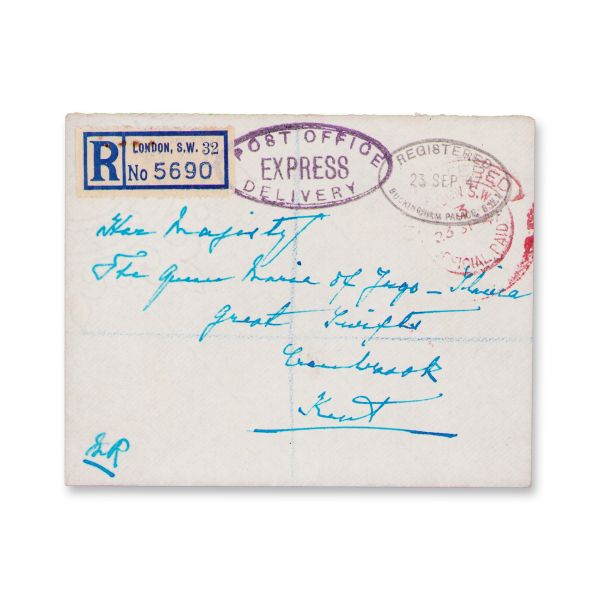 R LONDON, S.W. 32
No 5690
POST OFFICE
EXPRESS
DELIVERY
REGISTERED
23 SEP
BUCKINGHAM PALACE, S.W.1
OFFICIAL PAID
Her Majesty
The Queen Marie of Jugo-Slavia
Great Swifts
Cranbrook
Kent